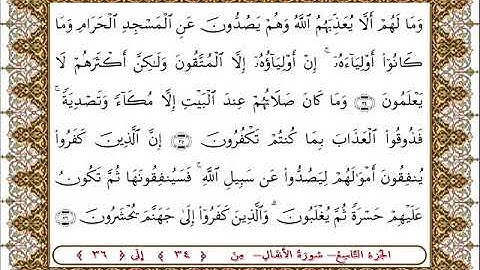 وَمَا لَهُمْ أَلَّا يُعَذِّبَهُمُ ٱللَّهُ وَهُمْ يَصُدُّونَ عَنِ ٱلْمَسْجِدِ ٱلْحَرَامِ وَمَا
كَانُوٓا۟ أَوْلِيَآءَهُۥٓ ۚ إِنْ أَوْلِيَآؤُهُۥٓ إِلَّا ٱلْمُتَّقُونَ وَلَٰكِنَّ أَكْثَرَهُمْ لَا
يَعْلَمُونَ ﴿٣٤﴾ وَمَا كَانَ صَلَاتُهُمْ عِندَ ٱلْبَيْتِ إِلَّا مُكَآءً وَتَصْدِيَةً ۚ
فَذُوقُوا۟ ٱلْعَذَابَ بِمَا كُنتُمْ تَكْفُرُونَ ﴿٣٥﴾ إِنَّ ٱلَّذِينَ كَفَرُوا۟
يُنفِقُونَ أَمْوَٰلَهُمْ لِيَصُدُّوا۟ عَن سَبِيلِ ٱللَّهِ ۚ فَسَيُنفِقُونَهَا ثُمَّ تَكُونُ
عَلَيْهِمْ حَسْرَةً ثُمَّ يُغْلَبُونَ ۗ وَٱلَّذِينَ كَفَرُوٓا۟ إِلَىٰ جَهَنَّمَ يُحْشَرُونَ ﴿٣٦﴾
الجزء التاسع- سورة الأنفال- من ﴿ ٣٤ ﴾ إلى ﴿ ٣٦ ﴾